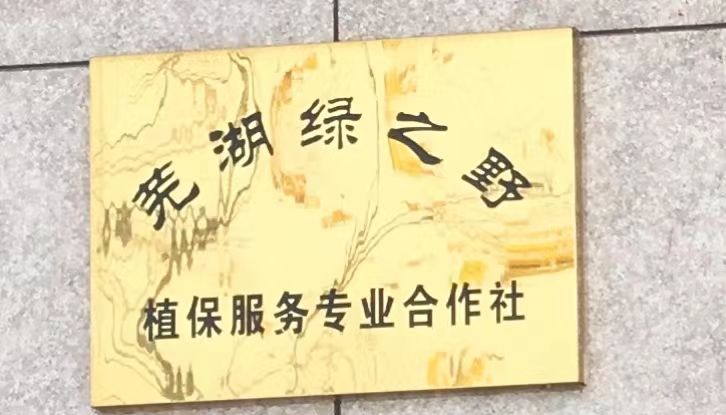 芜湖绿亿野
植保服务专业合作社